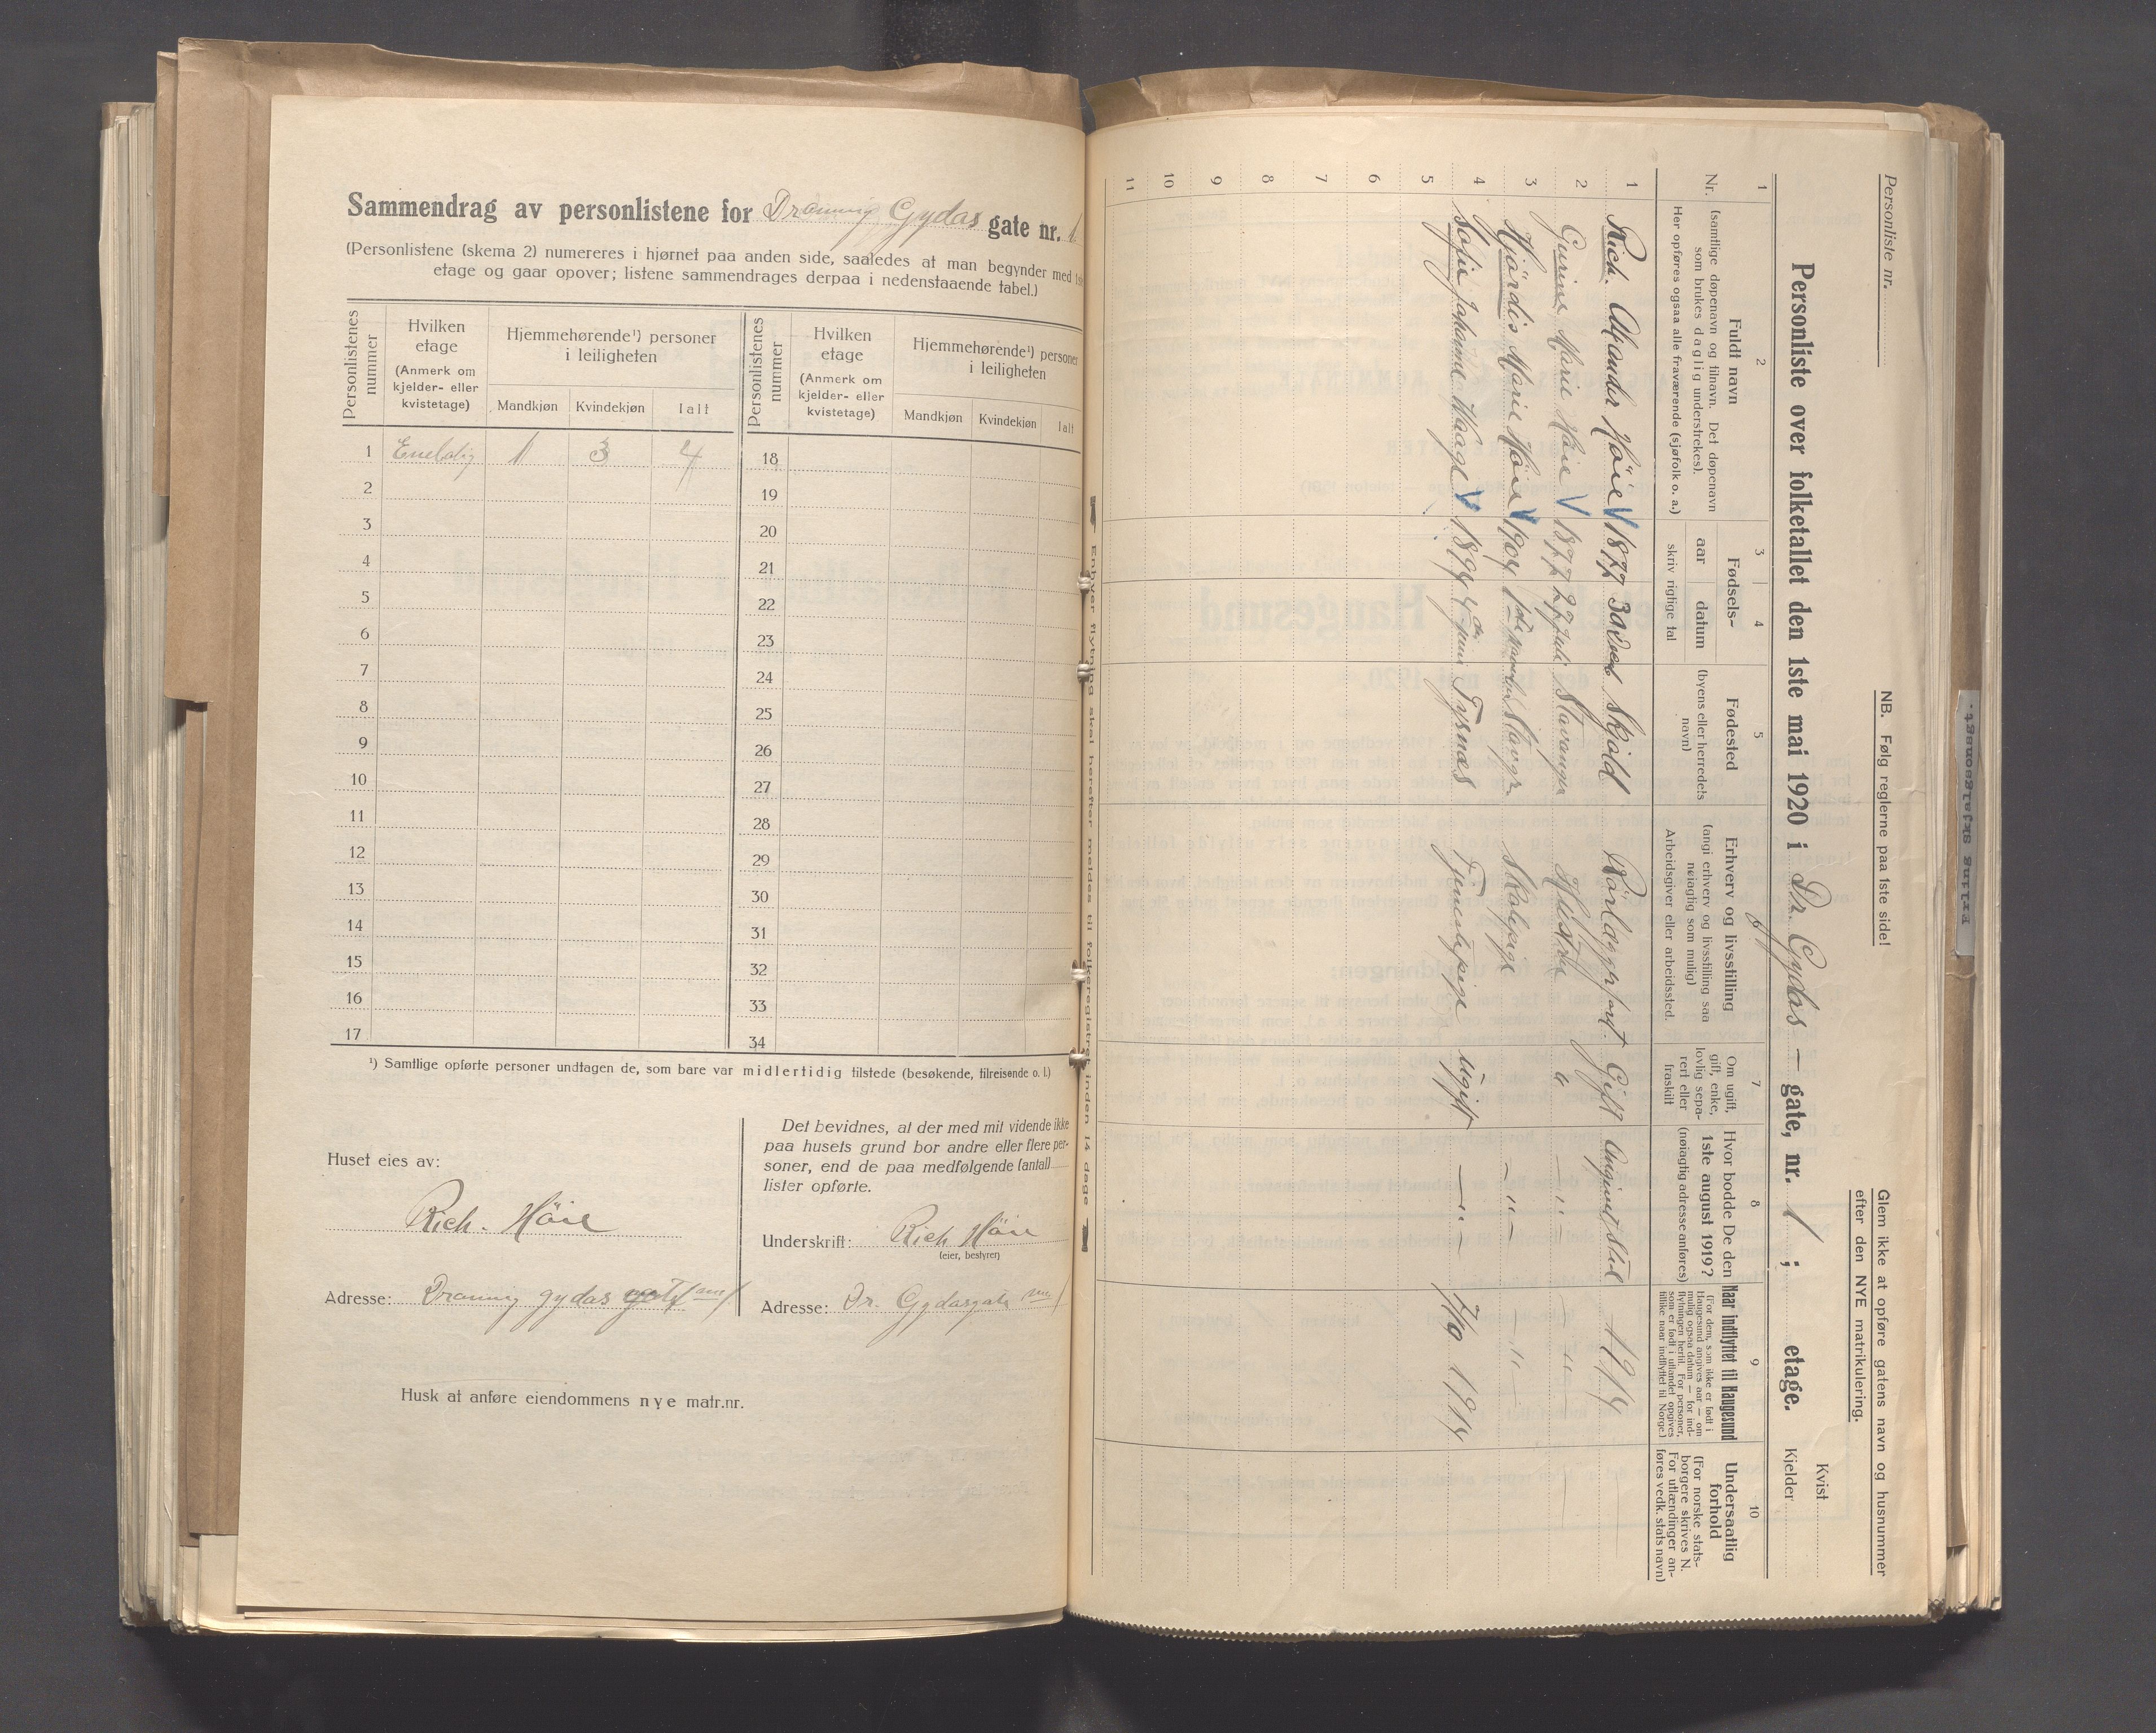 Sammendrag av personlistene for Dronning Gydas gate nr. 1
(Personlistene (skema 2) numereres i hjørnet paa anden side, saaledes at man begynder med 1ste
etage og gaar opover; listene sammendrages derpaa i nedenstaaende tabel.)
Personlistenes nummer
Hvilken etage
(Anmerk om kjelder- eller kvistetage)
Hjemmehørende¹) personer i leiligheten
Mandkjøn Kvindekjøn Ialt
Personlistenes nummer
Hvilken etage
(Anmerk om kjelder- eller kvistetage)
Hjemmehørende¹) personer i leiligheten
Mandkjøn Kvindekjøn Ialt
1 Enebolig 1 3 4 18
2 19
3 20
4 21
5 22
6 23
7 24
8 25
9 26
10 27
11 28
12 29
13 30
14 31
15 32
16 33
17 34
¹) Samtlige opførte personer undtagen de, som bare var midlertidig tilstede (besøkende, tilreisende o. l.)
Huset eies av:
Rich. Höie
Adresse: Dronning gydas gate nr 1
Det bevidnes, at der med mit vidende ikke
paa husets grund bor andre eller flere per-
soner, end de paa medfølgende (antal)
lister opførte.
Underskrift: Rich Höie
(eier, bestyrer)
Adresse: Dr. Gydasgate nr 1
Husk at anføre eiendommens nye matr.nr.
Enhver flytning skal herefter meldes til folkeregistret inden 14 dage
Personliste nr.
NB. Følg reglerne paa 1ste side!
Glem ikke at opføre gatens navn og husnummer
efter den NYE matrikulering.
Personliste over folketallet den 1ste mai 1920 i Dr. Gydas — gate, nr. 1 ; etage.
Kvist
Kjelder
1 2 3 4 5 7 8 9 10
Nr.
Fuldt navn
(samtlige døpenavn og tilnavn. Det døpenavn
som brukes daglig understrekes).
Her opføres ogsaa alle fraværende (sjøfolk o. a.)
Fødsels-
aar datum
skriv rigtige tal
Fødested
(byens eller herredets
navn)
Erhverv og livsstilling
(angi erhverv og livsstilling saa
nøiagtig som mulig)
Arbeidsgiver eller arbeidssted.
Om ugift,
gift, enke,
lovlig sepa-
rert eller
fraskilt
Hvor bodde De den
1ste august 1919?
(nøiagtig adresse anføres)
Naar indflyttet til Haugesund
(For dem, som ikke er født i
Haugesund angives aar — om
mulig ogsaa datum — for ind-
flytningen hertil. For personer,
som er født i utlandet opgives
tillike naar indflyttet til Norge.)
Undersaatlig
forhold
(For norske stats-
borgere skrives N.
For utlændinger an-
føres vedk. stats navn)
1 Rich. Höie 1877 30 Skjold Rörlægger Gift Angivet sted 1914
2 Marie Höie 1877 27 juli Stavanger Hustru " — " — — " —
3 Hjördis Marie Höie 1904 Stavgr Skolepige — " — — " —
4 Sofie Johanne Waage 1894 4 juni Tysnæs Tjenestepige ugift — " — 7/10 1914
5
6
7
8
9
10
11
Statsarkivet